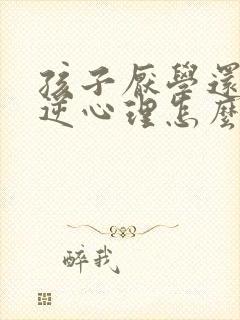 孩子厭學還
逆心理怎麼
醉我